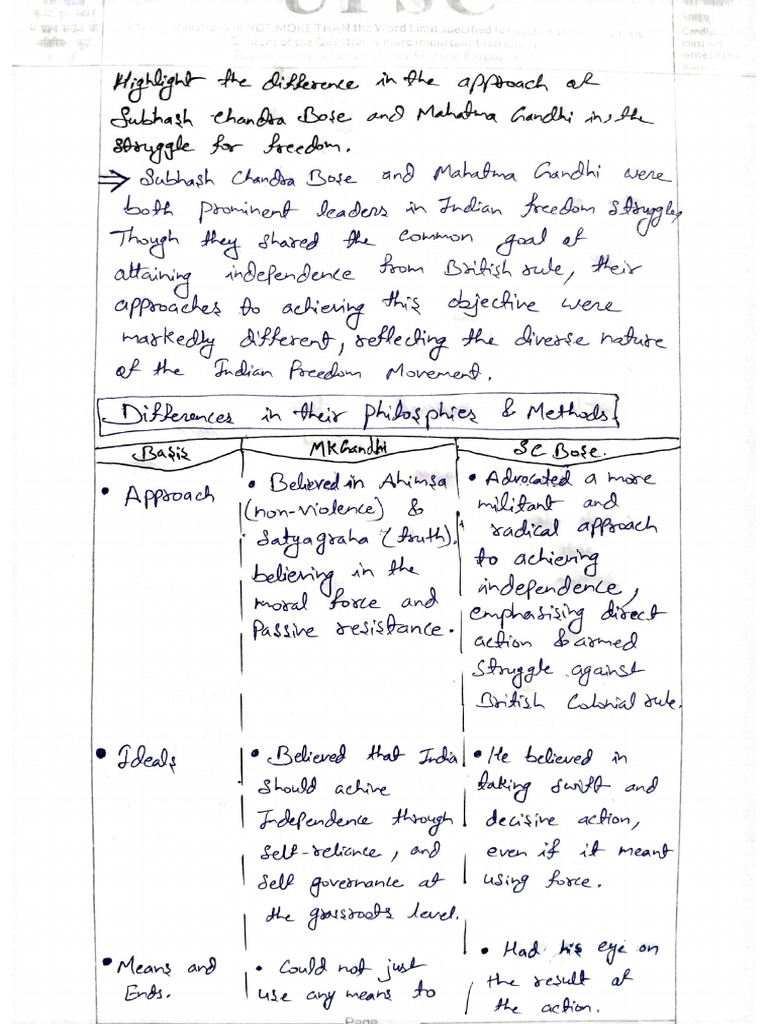 UPSC
Highlight the difference in the approach of
Subhash Chandra Bose and Mahatma Gandhi in, the
struggle for freedom.
⇒ Subhash Chandra Bose and Mahatma Gandhi were
both prominent leaders in Indian freedom struggle,
Though they shared the common goal of
attaining independence from British rule, their
approaches to achieving this objective were
markedly different, reflecting the diverse nature
of the Indian Freedom Movement.
Differences in their Philosphies & Methods
Basis
MK Gandhi
SC Bose.
• Approach
• Believed in Ahimsa
(non-violence) &
Satyagraha (truth),
believing in the
moral force and
Passive resistance.
• Advocated a more
militant and
radical approach
to achieving
independence,
emphasising direct
action & armed
struggle against
British Colonial rule.
• Ideals
• Believed that India
should achive
Independence through
self-reliance, and
self governance at
the grassroots level.
• He believed in
taking swift and
decisive action,
even if it meant
using force.
• Means and
Ends.
• Could not just
use any means to
• Had his eye on
the result of
the action.
Page